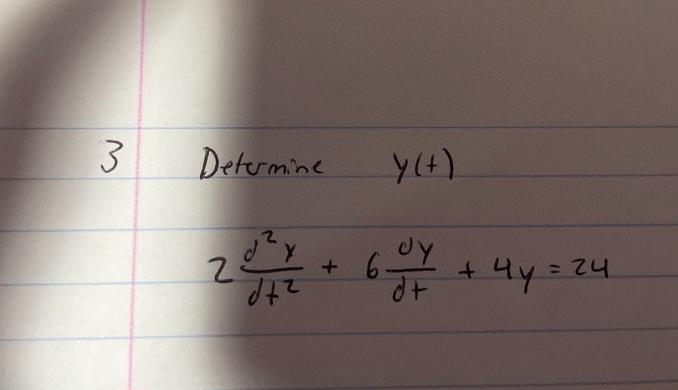 3 Determine y(t)
2 d²y/dt² + 6 dy/dt + 4y = 24